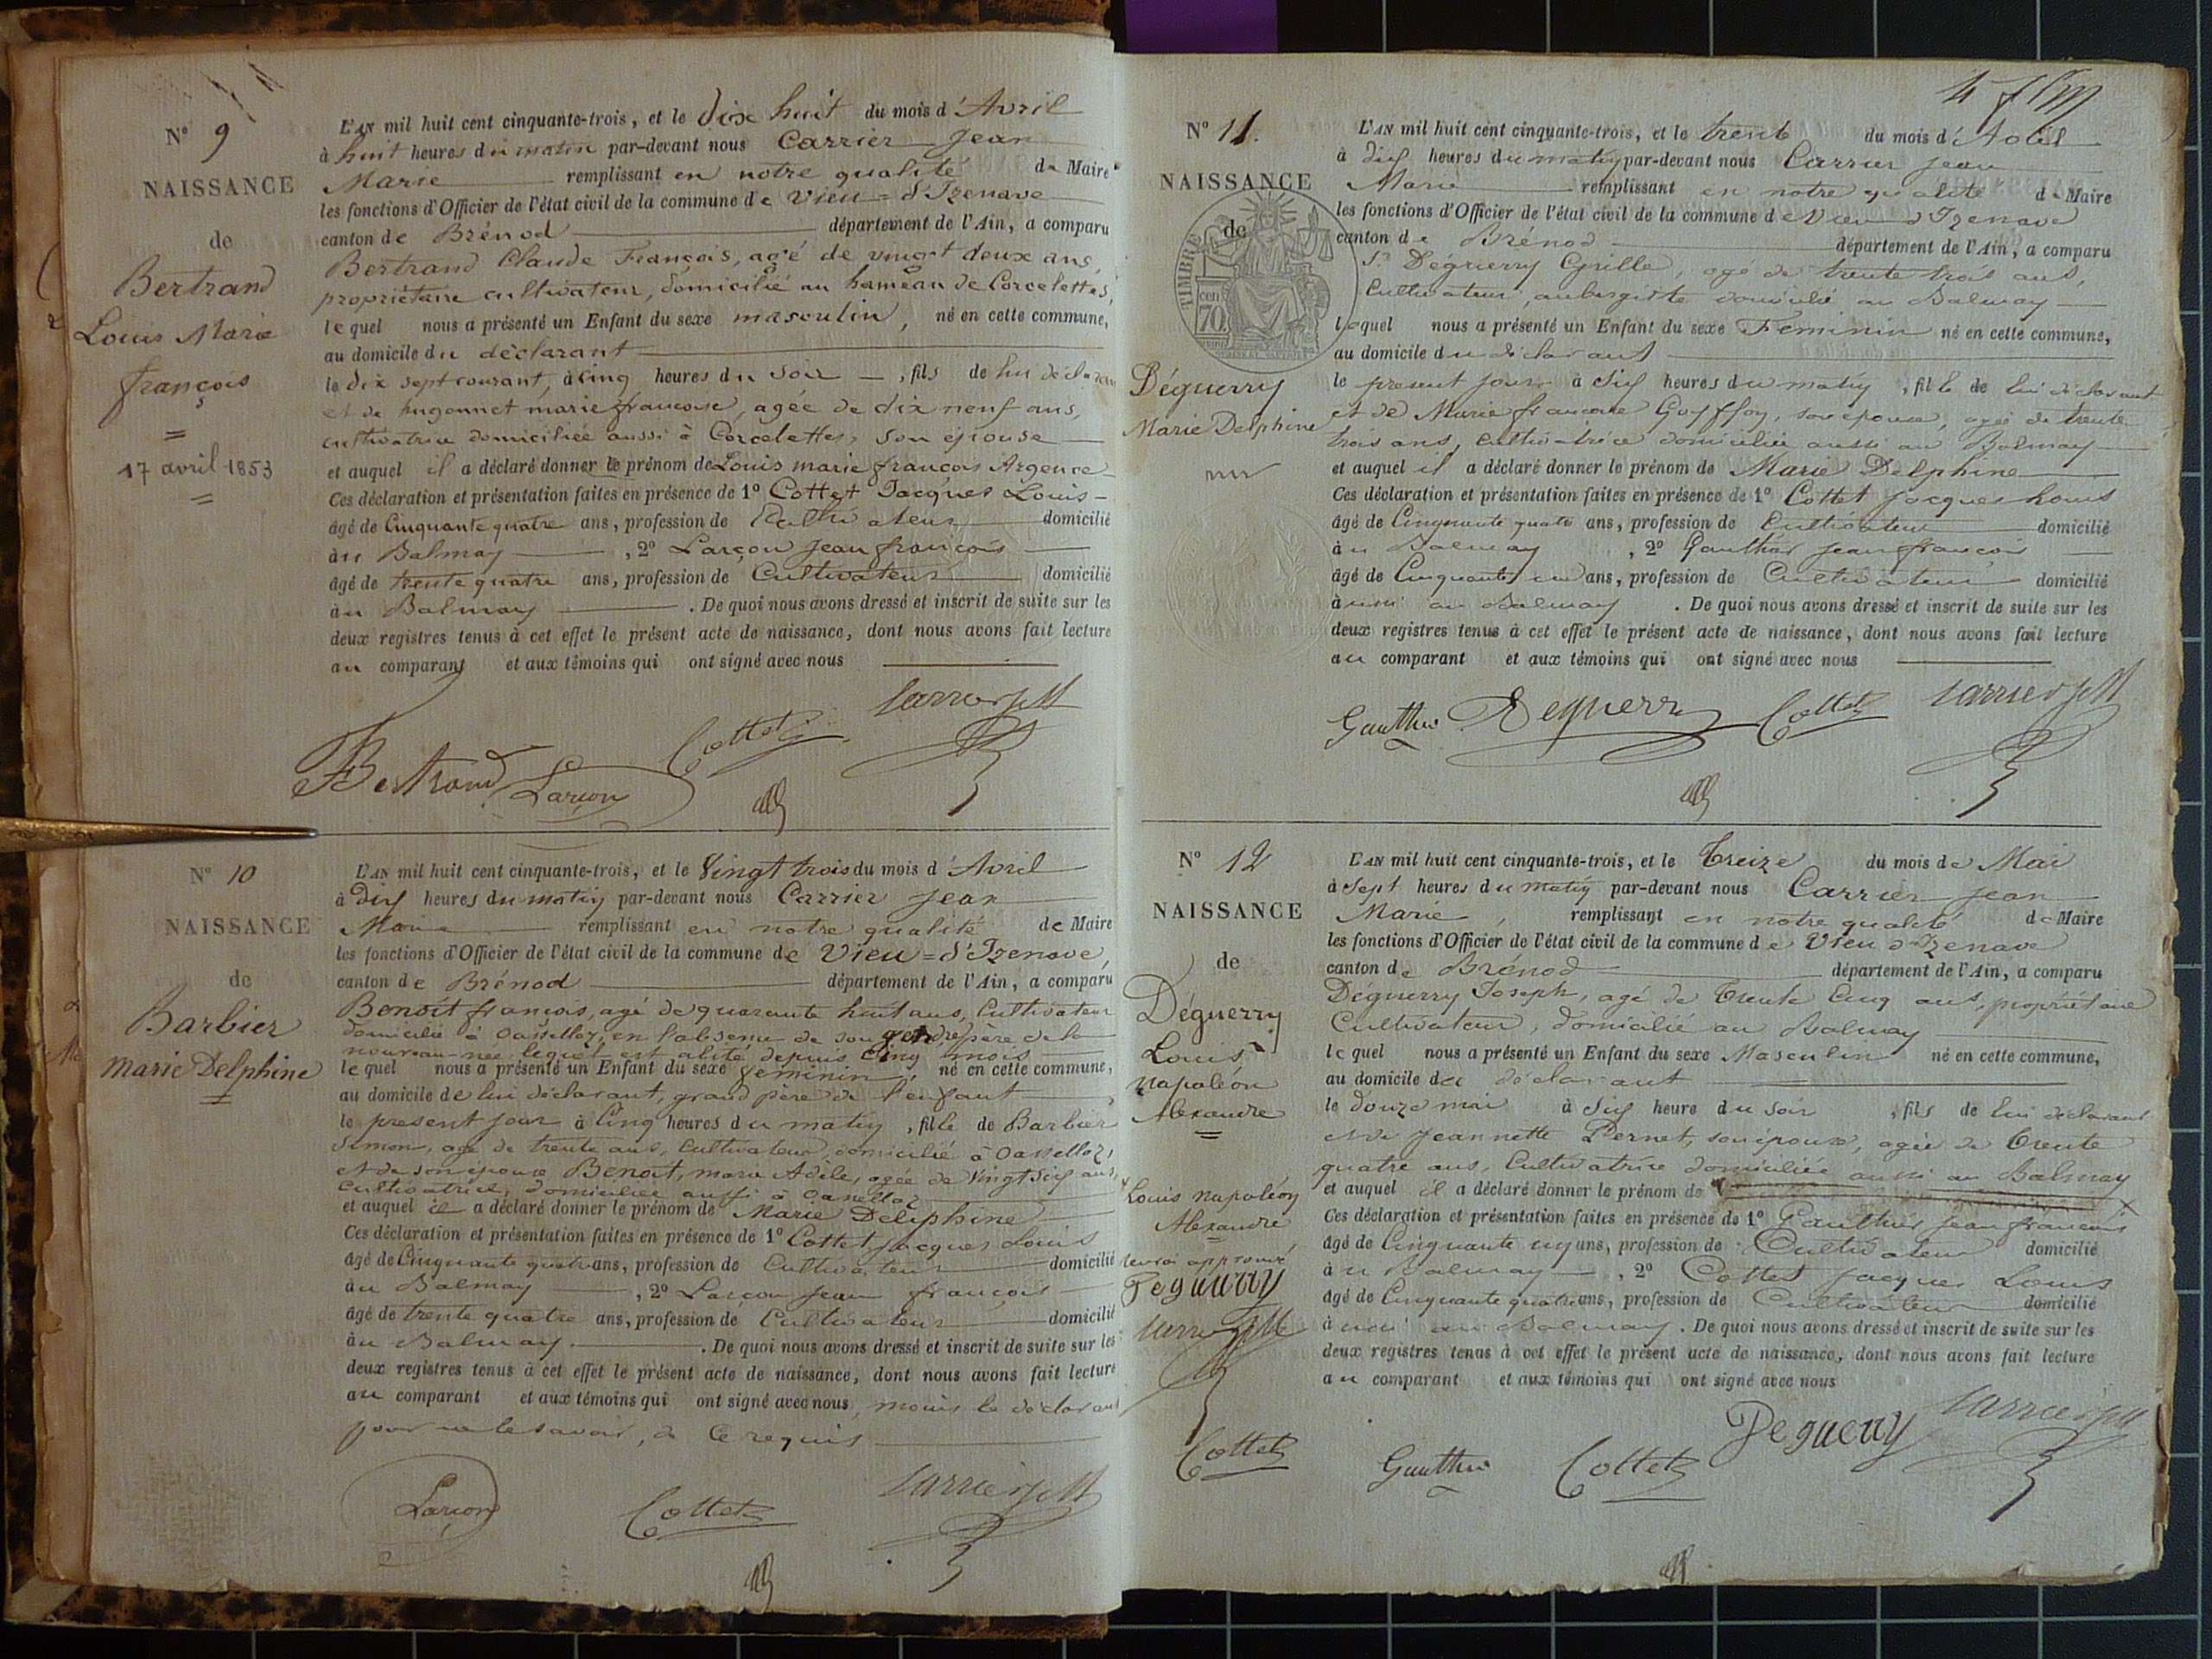 N° 9
NAISSANCE
de
Bertrand
Louis Marie
françois
17 avril 1853
L'AN mil huit cent cinquante-trois, et le dix huit du mois d'Avril
à huit heures du matin par-devant nous Carrier Jean
Marie remplissant en notre qualité de Maire
les fonctions d'Officier de l'état civil de la commune de Vieu=d'Izenave
canton de Brénod département de l'Ain, a comparu
Bertrand Claude François, agé de vingt deux ans,
propriétaire cultivateur, domicilié au hameau de Corcelettes,
lequel nous a présenté un Enfant du sexe masculin, né en cette commune,
au domicile du déclarant
le dix sept courant, à cinq heures du soir, fils de lui déclarant
et de hugonnet marie francoise, agée de dix neuf ans,
cultivatrice domiciliée aussi à Corcelettes, son épouse
et auquel il a déclaré donner le prénom de Louis marie françois Argence
Ces déclaration et présentation faites en présence de 1° Cottet Jacques Louis
âgé de Cinquante quatre ans, profession de Cultivateur domicilié
au Balmay, 2° Larçon Jean françois
âgé de trente quatre ans, profession de Cultivateur domicilié
au Balmay. De quoi nous avons dressé et inscrit de suite sur les
deux registres tenus à cet effet le présent acte de naissance, dont nous avons fait lecture
au comparant et aux témoins qui ont signé avec nous
Carrier J M
Cottet
Bertrand Larçon
N° 10
NAISSANCE
de
Barbier
marie Delphine
L'AN mil huit cent cinquante-trois, et le Vingt trois du mois d'Avril
à Dix heures du matin par-devant nous Carrier Jean
Marie remplissant en notre qualité de Maire
les fonctions d'Officier de l'état civil de la commune de Vieu=d'Izenave,
canton de Brénod département de l'Ain, a comparu
Benoit francois, agé de quarante huit ans, Cultivateur
domicilié à Oassellaz, en l'absence de son gendre père de la
nouveau-née lequel est alité depuis cinq mois
lequel nous a présenté un Enfant du sexe féminin, né en cette commune,
au domicile de lui déclarant, grand père de l'enfant
le present jour à Cinq heures du matin, fille de Barbier
Simon, agé de trente ans, Cultivateur, domicilié à Oassellaz,
et de son épouse Benoit, marie Adèle, agée de Vingt Six ans,
cultivatrice, domiciliée aussi à Oassellaz
et auquel il a déclaré donner le prénom de Marie Delphine
Ces déclaration et présentation faites en présence de 1° Cottet Jacques Louis
âgé de Cinquante quatre ans, profession de Cultivateur domicilié
au Balmay, 2° Larçon Jean francois
âgé de trente quatre ans, profession de Cultivateur domicilié
au Balmay. De quoi nous avons dressé et inscrit de suite sur les
deux registres tenus à cet effet le présent acte de naissance, dont nous avons fait lecture
au comparant et aux témoins qui ont signé avec nous, moins le déclarant
pour ne le savoir, de Ce requis
Larçon Cottet Carrier J M
4
N° 11.
NAISSANCE
de
TIMBRE
70
Déguerry
Marie Delphine
L'AN mil huit cent cinquante-trois, et le trente du mois d'Avril
à dix heures du matin par-devant nous Carrier Jean
Marie remplissant en notre qualité de Maire
les fonctions d'Officier de l'état civil de la commune de Vieu d'Izenave
canton de Brénod département de l'Ain, a comparu
Sr Déguerry Cyrille, agé de trente trois ans,
Cultivateur, aubergiste domicilié au Balmay
lequel nous a présenté un Enfant du sexe Feminin né en cette commune,
au domicile du déclarant
le present jour à six heures du matin, fille de lui déclarant
et de Marie francoise Goyffon, son épouse, agée de trente
trois ans, Cultivatrice domiciliée aussi au Balmay
et auquel il a déclaré donner le prénom de Marie Delphine
Ces déclaration et présentation faites en présence de 1° Cottet Jacques Louis
âgé de Cinquante quatre ans, profession de Cultivateur domicilié
au Balmay, 2° Gauthier Jean francois
âgé de Cinquante un ans, profession de Cultivateur domicilié
aussi au Balmay. De quoi nous avons dressé et inscrit de suite sur les
deux registres tenus à cet effet le présent acte de naissance, dont nous avons fait lecture
au comparant et aux témoins qui ont signé avec nous
Gauthier Deguerry Cottet Carrier J M
N° 12
NAISSANCE
de
Déguerry
Louis
napoléon
Alexandre
Louis napoléon
Alexandre
renvoi approuvé
Deguerry
Carrier J M
Cottet
L'AN mil huit cent cinquante-trois, et le Treize du mois de Mai
à Sept heures du matin par-devant nous Carrier Jean
Marie, remplissant en notre qualité de Maire
les fonctions d'Officier de l'état civil de la commune de Vieu d'Izenave
canton de Brénod département de l'Ain, a comparu
Déguerry Joseph, agé de Trente Cinq ans, propriétaire
Cultivateur, domicilié au Balmay
lequel nous a présenté un Enfant du sexe Masculin né en cette commune,
au domicile du déclarant
le douze mai à Six heure du soir, fils de lui déclarant
et de Jeannette Pernet, son épouse, agée de trente
quatre ans, Cultivatrice domiciliée aussi au Balmay
et auquel il a déclaré donner le prénom de
Ces déclaration et présentation faites en présence de 1° Gauthier Jean francois
âgé de Cinquante un ans, profession de Cultivateur domicilié
au Balmay, 2° Cottet Jacques Louis
âgé de Cinquante quatre ans, profession de Cultivateur domicilié
aussi au Balmay. De quoi nous avons dressé et inscrit de suite sur les
deux registres tenus à cet effet le présent acte de naissance, dont nous avons fait lecture
au comparant et aux témoins qui ont signé avec nous
Gauthier Cottet Deguerry Carrier J M